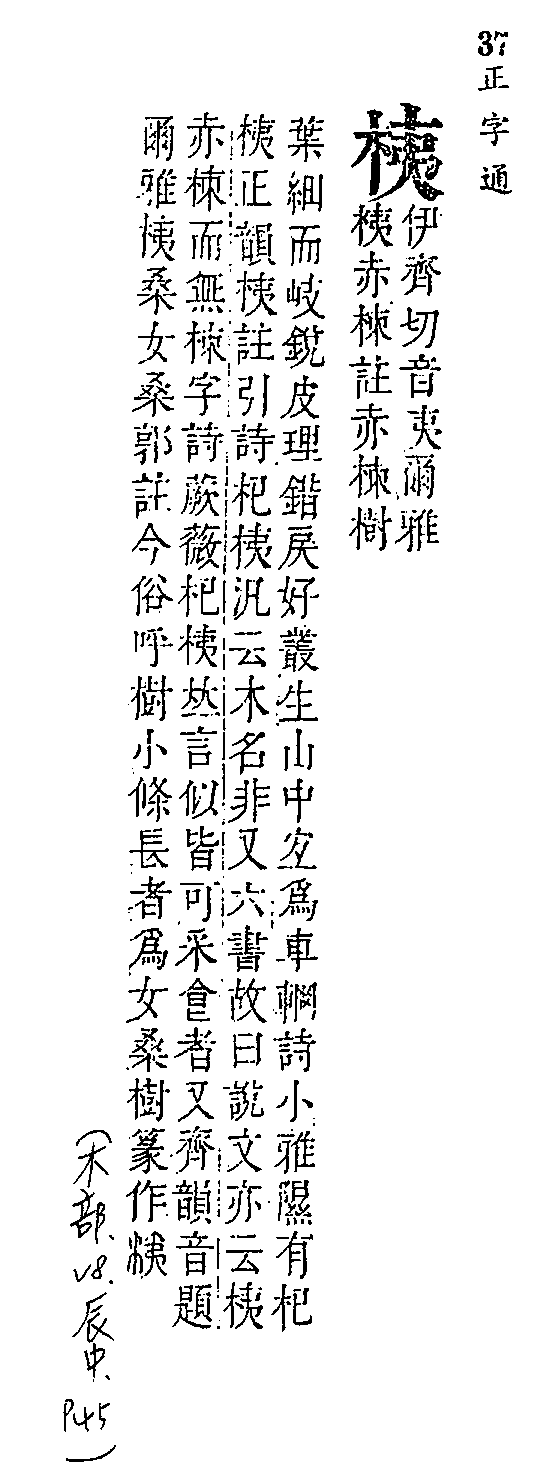 37 正字通
桋
伊齊切音夷爾雅
桋赤楝註赤楝樹
葉細而岐銳皮理錯戾好叢生山中㝎爲車輞詩小雅隰有杞
桋正韻桋註引詩杞桋汎云木名非又六書故曰說文亦云桋
赤楝而無楝字詩蕨薇杞桋𠀤言似皆可采𩚁者又齊韻音題
爾雅桋桑女桑郭註今俗呼樹小條長者爲女桑樹篆作桋
(木部. v8. 辰中. P45)